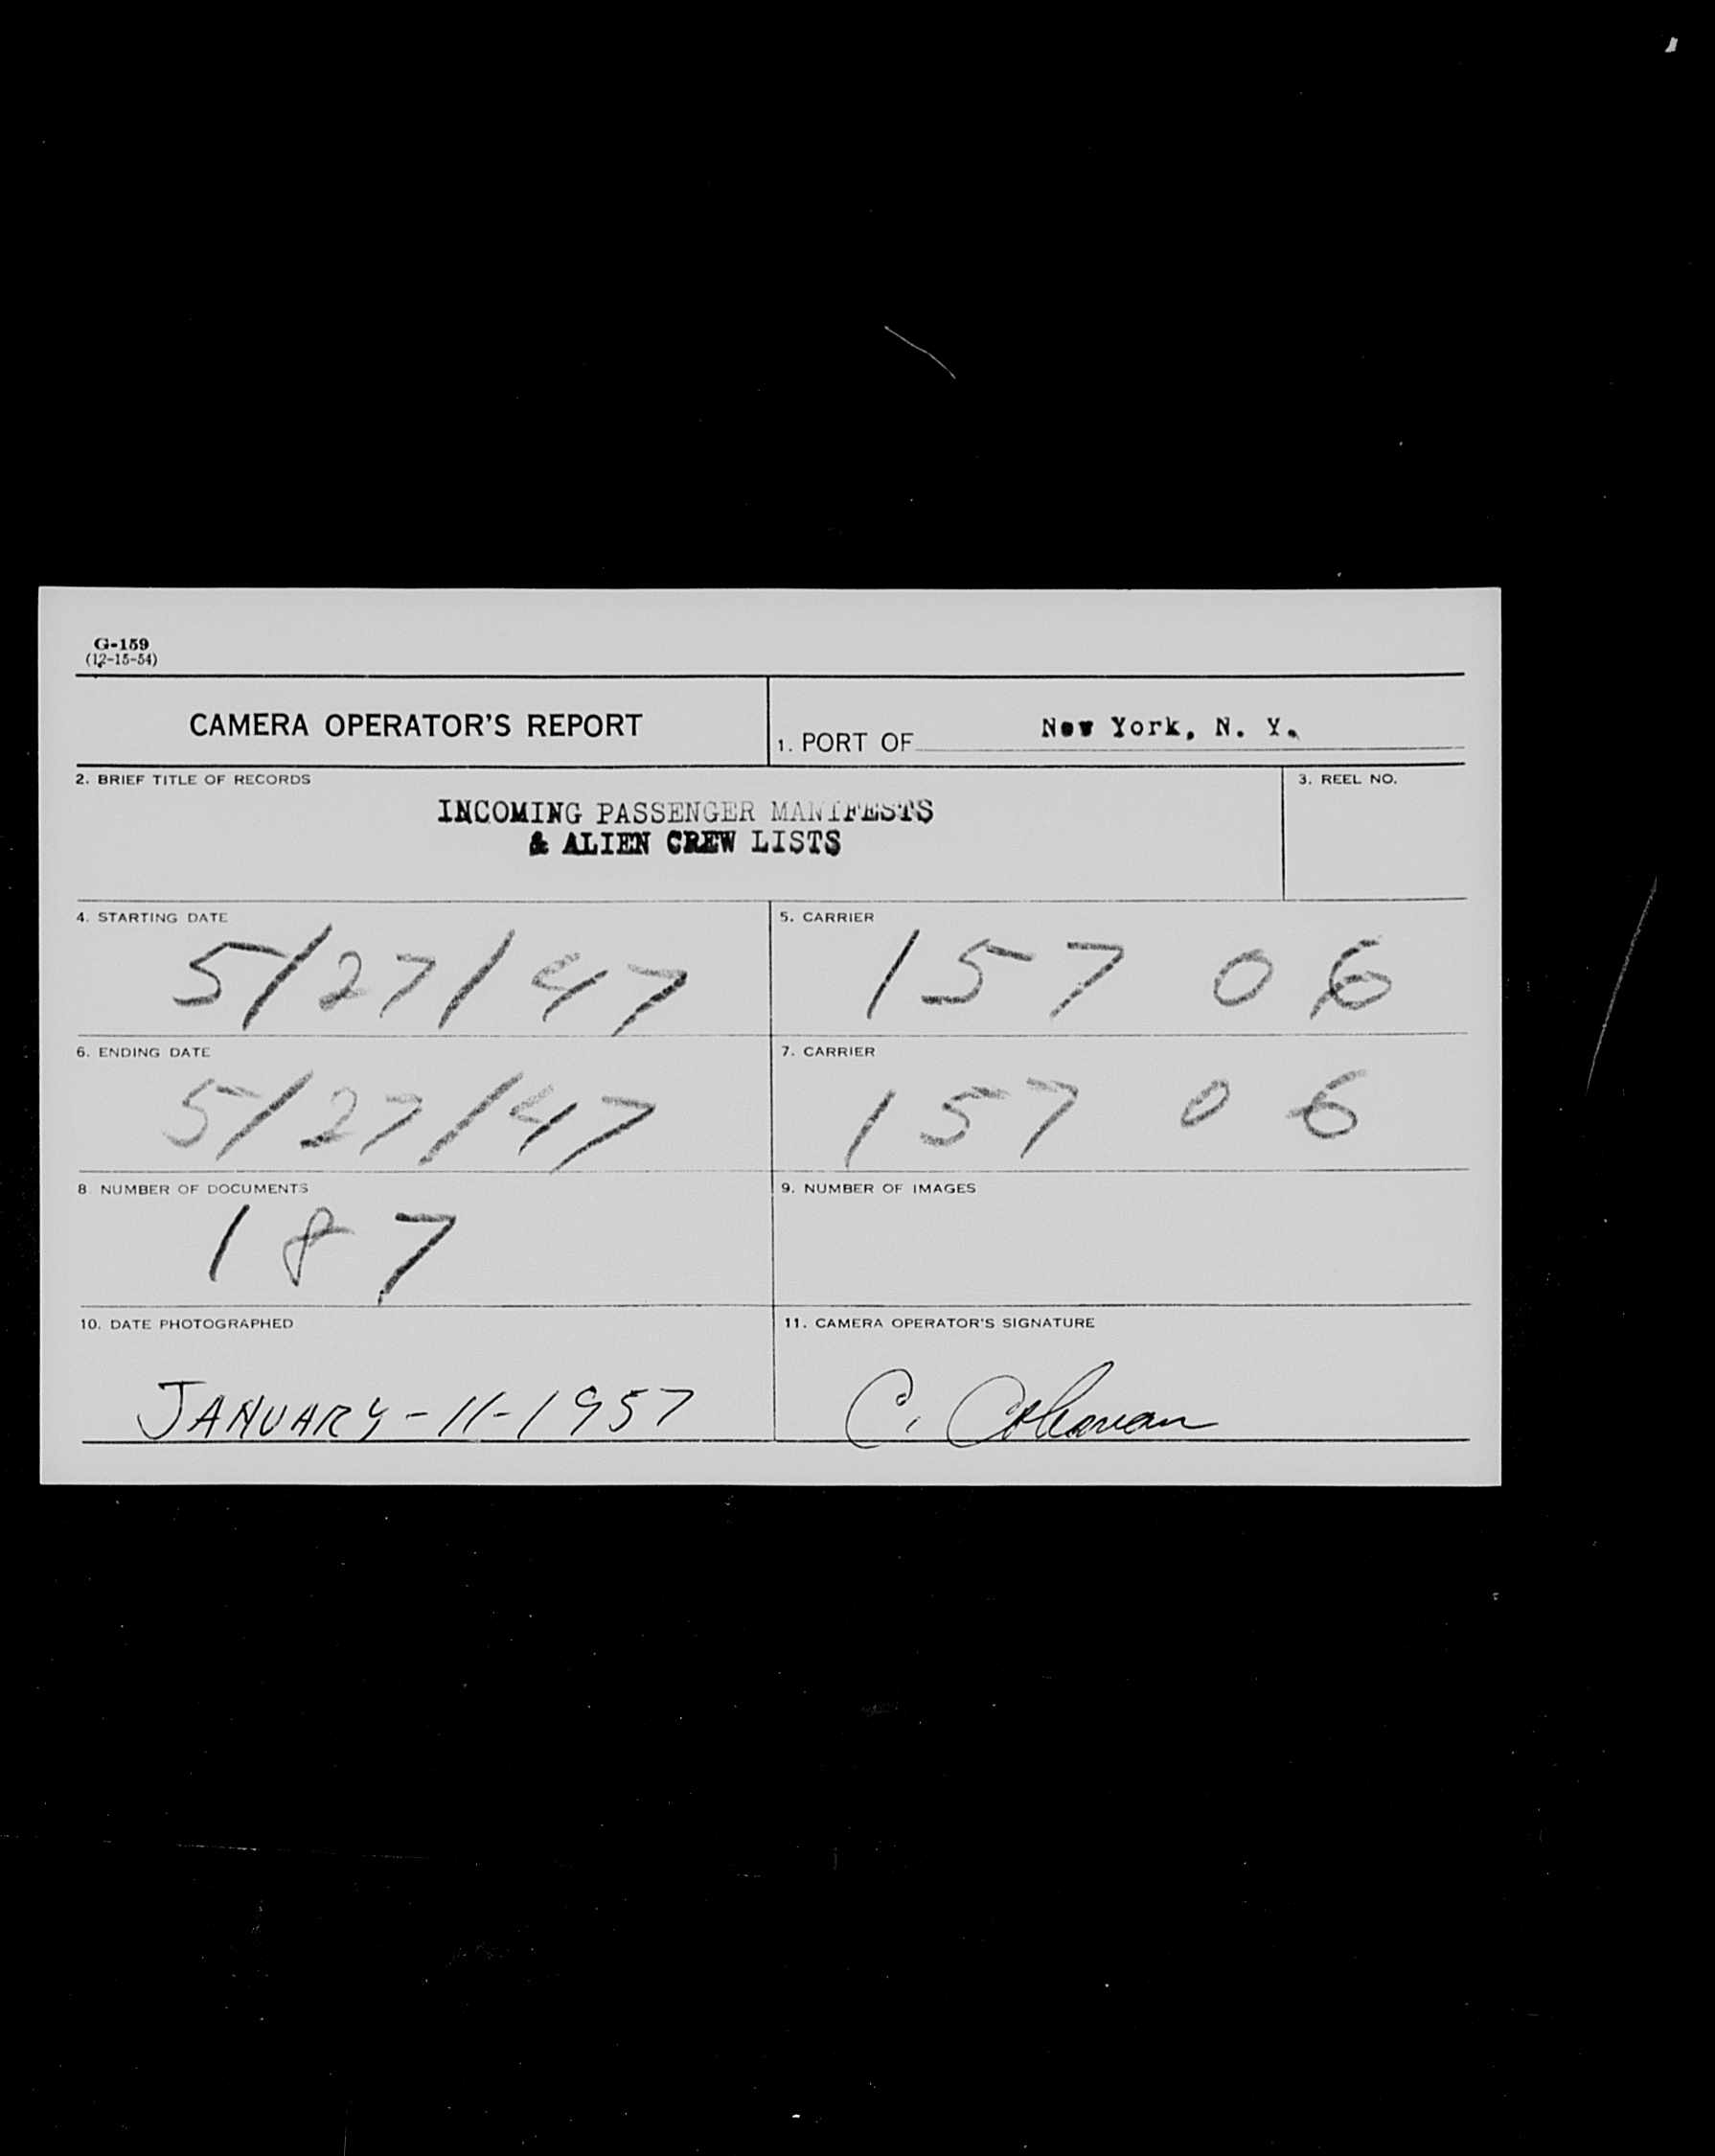 G-159
(12-15-54)
CAMERA OPERATOR'S REPORT
1. PORT OF New York, N. Y.
2. BRIEF TITLE OF RECORDS
3. REEL NO.
INCOMING PASSENGER MANIFESTS
& ALIEN CREW LISTS
4. STARTING DATE
5/27/47
5. CARRIER
157 06
6. ENDING DATE
5/27/47
7. CARRIER
157 06
8. NUMBER OF DOCUMENTS
187
9. NUMBER OF IMAGES
10. DATE PHOTOGRAPHED
JANUARY-11-1957
11. CAMERA OPERATOR'S SIGNATURE
C.